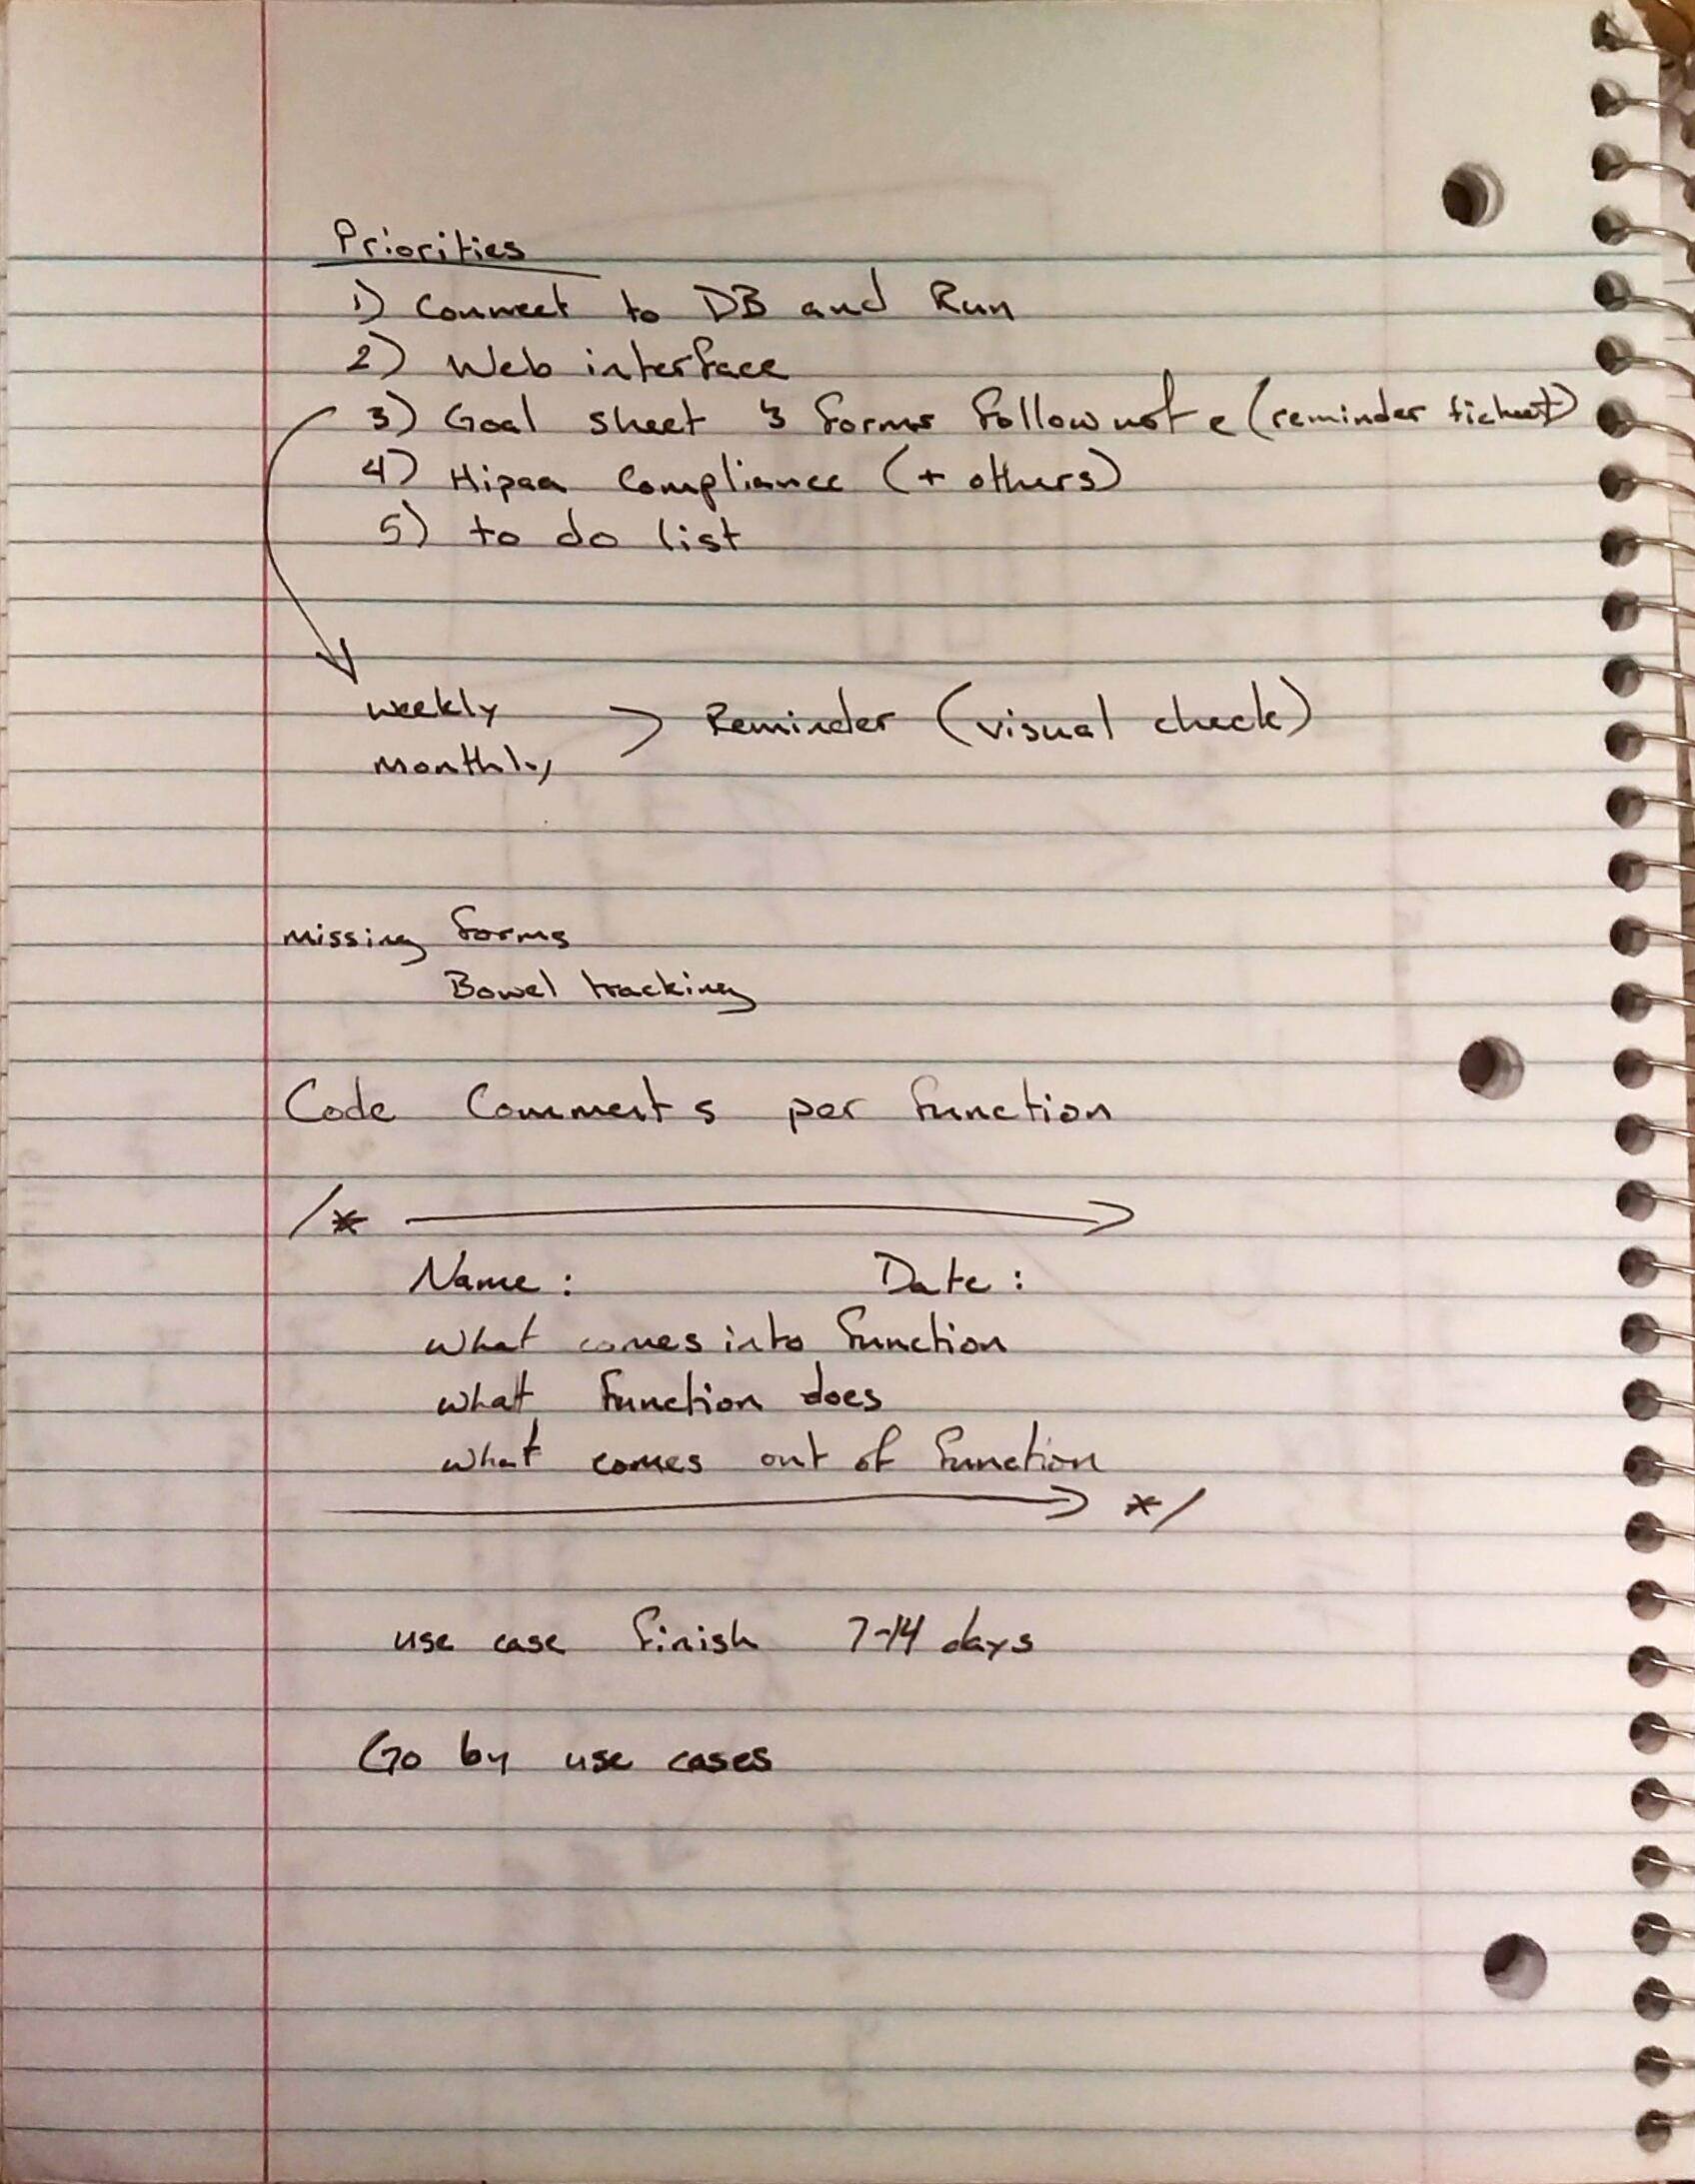 Priorities
1) Connect to DB and Run
2) Web interface
3) Goal sheet & forms follow note (reminder ticket)
4) Hipaa Compliance (+ others)
5) to do list
weekly > Reminder (visual check)
monthly
missing forms
Bowel tracking
Code Comments per function
/* →
Name: Date:
what comes into function
what function does
what comes out of function
→ */
use case finish 7-14 days
Go by use cases